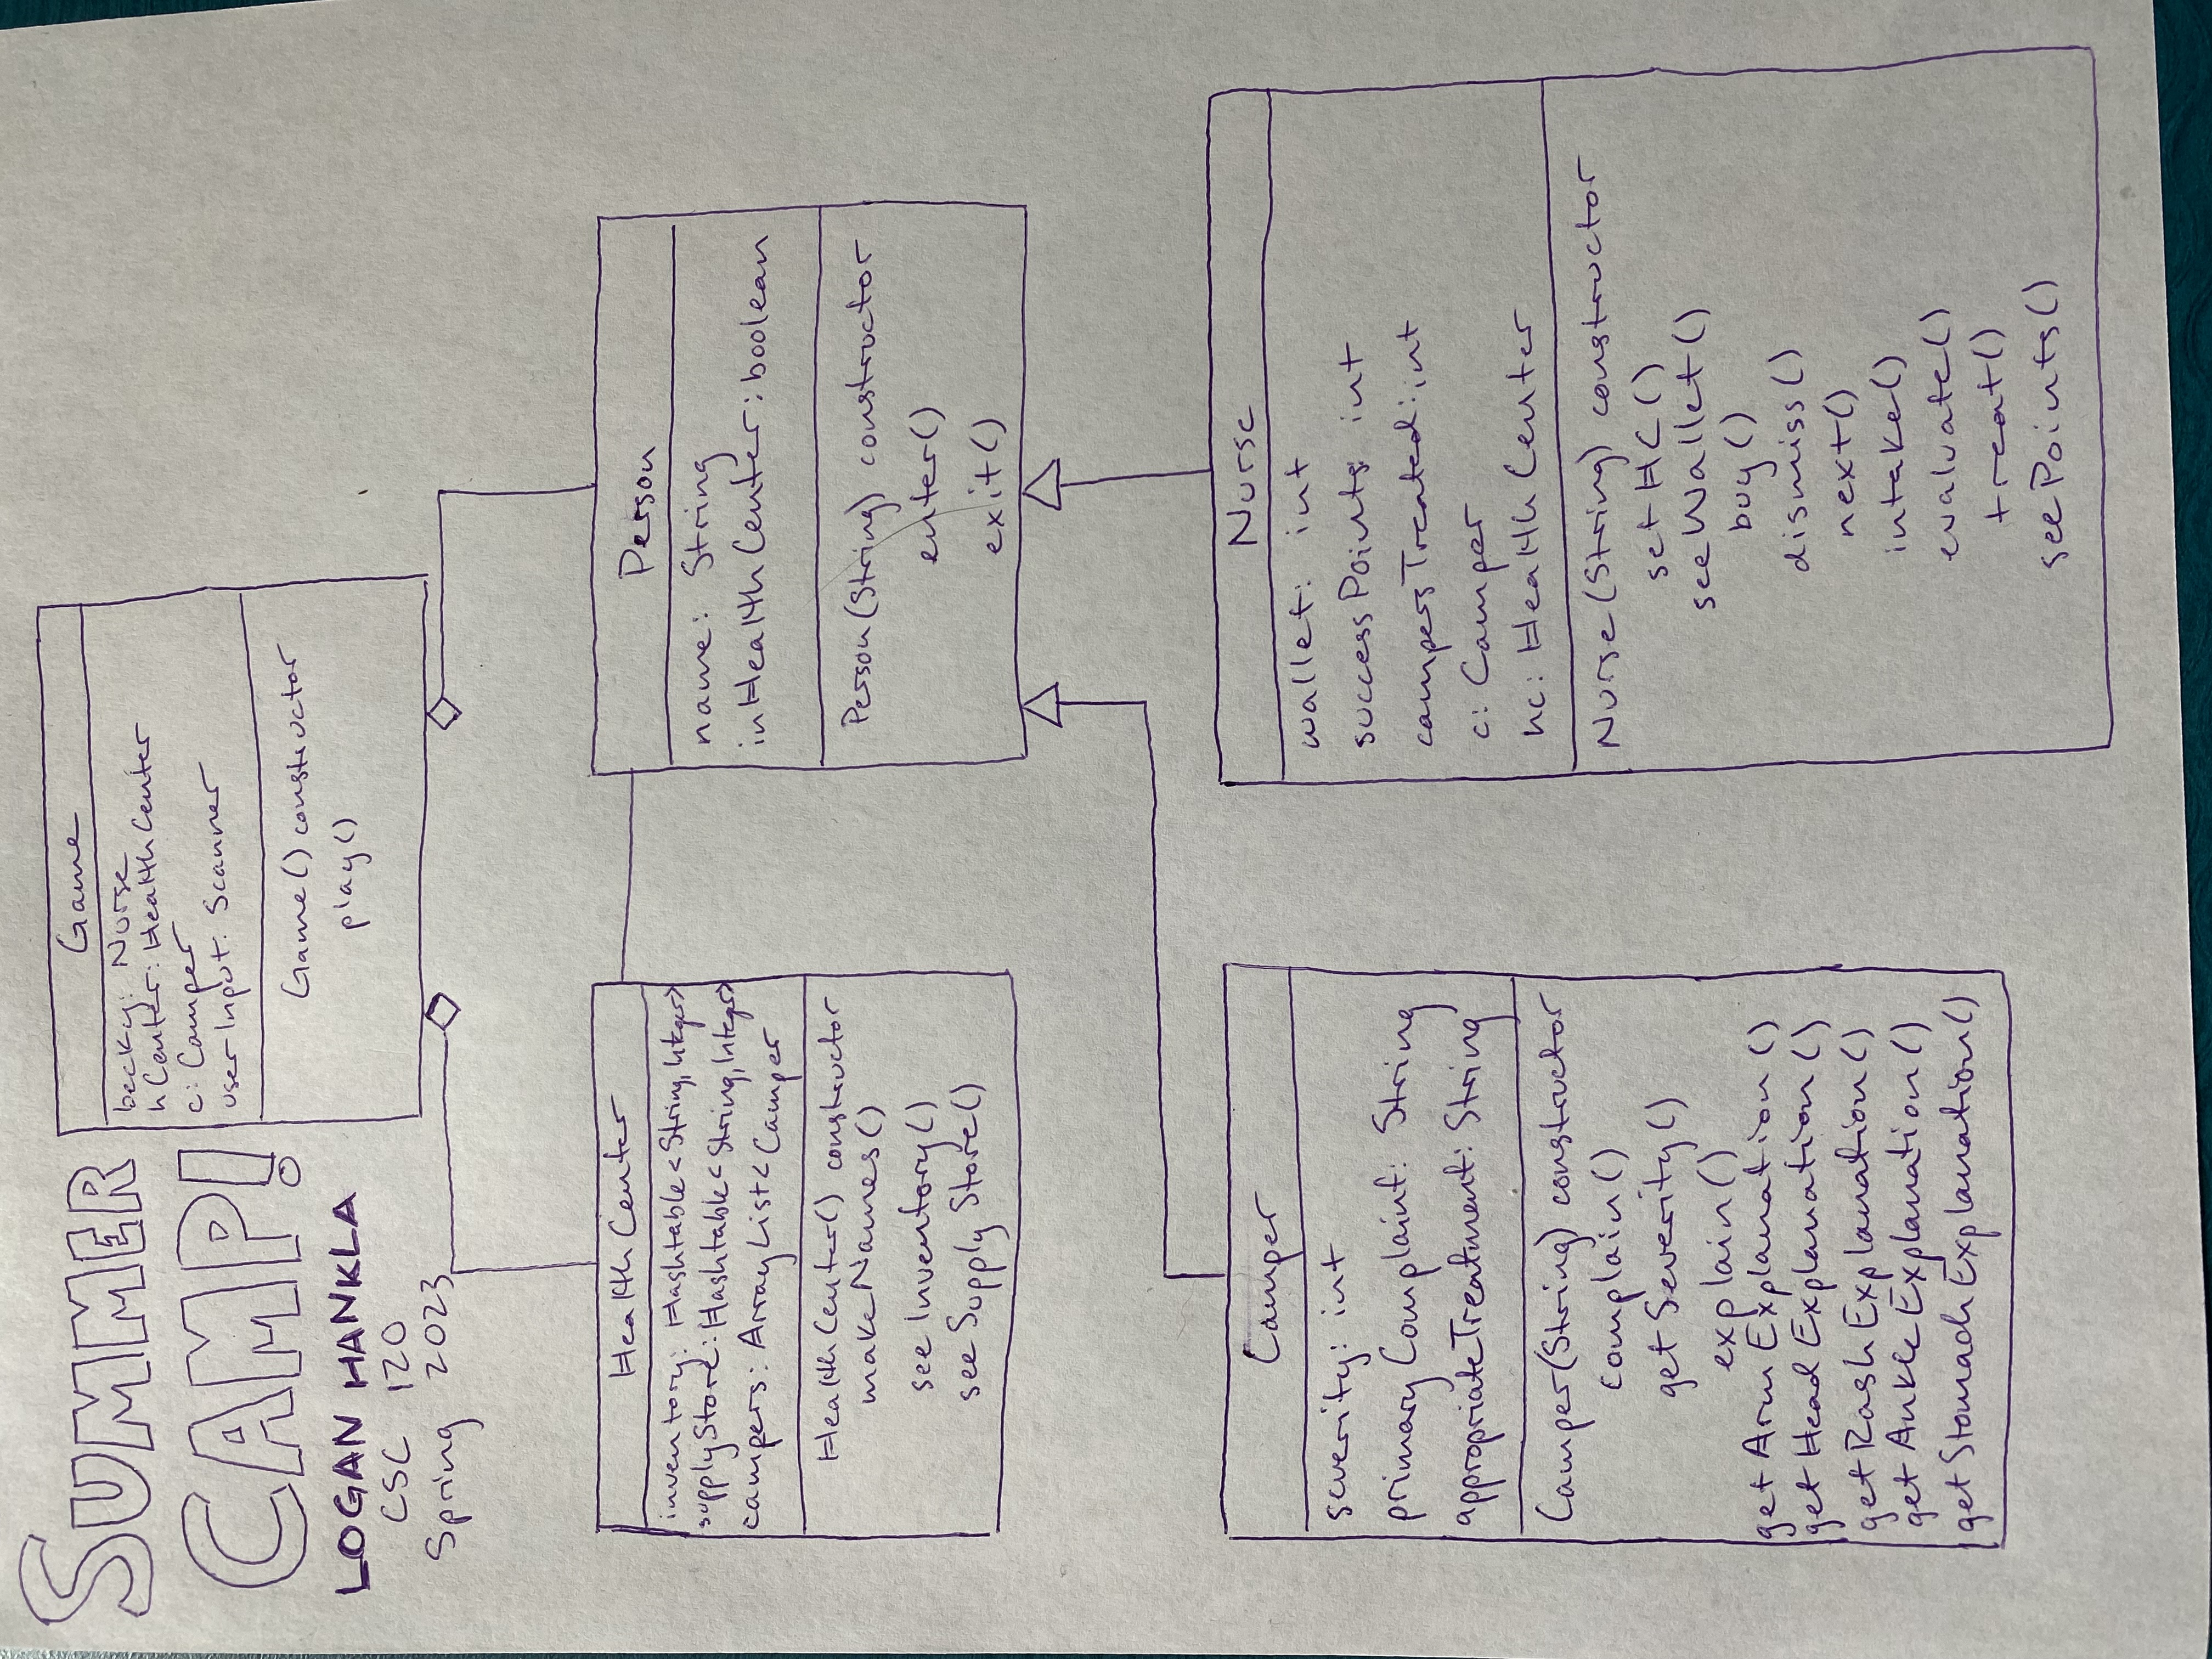 SUMMER
CAMP!
LOGAN HANKLA
CSC 120
Spring 2023
Game
becky: Nurse
hCenter: HealthCenter
c: Camper
userInput: Scanner
Game() constructor
play()
HealthCenter
inventory: Hashtable<String, Integer>
supplyStore: Hashtable<String, Integer>
campers: ArrayList<Camper
HealthCenter() constructor
makeNames()
seeInventory()
seeSupplyStore()
Person
name: String
inHealthCenter: boolean
Person(String) constructor
enter()
exit()
Camper
severity: int
primaryComplaint: String
appropriateTreatment: String
Camper(String) constructor
complain()
getSeverity()
explain()
getArmExplanation()
getHeadExplanation()
getRashExplanation()
getAnkleExplanation()
getStomachExplanation()
Nurse
wallet: int
successPoints: int
campersTreated: int
c: Camper
hc: HealthCenter
Nurse(String) constructor
setHC()
seeWallet()
buy()
dismiss()
next()
intake()
evaluate()
treat()
seePoints()